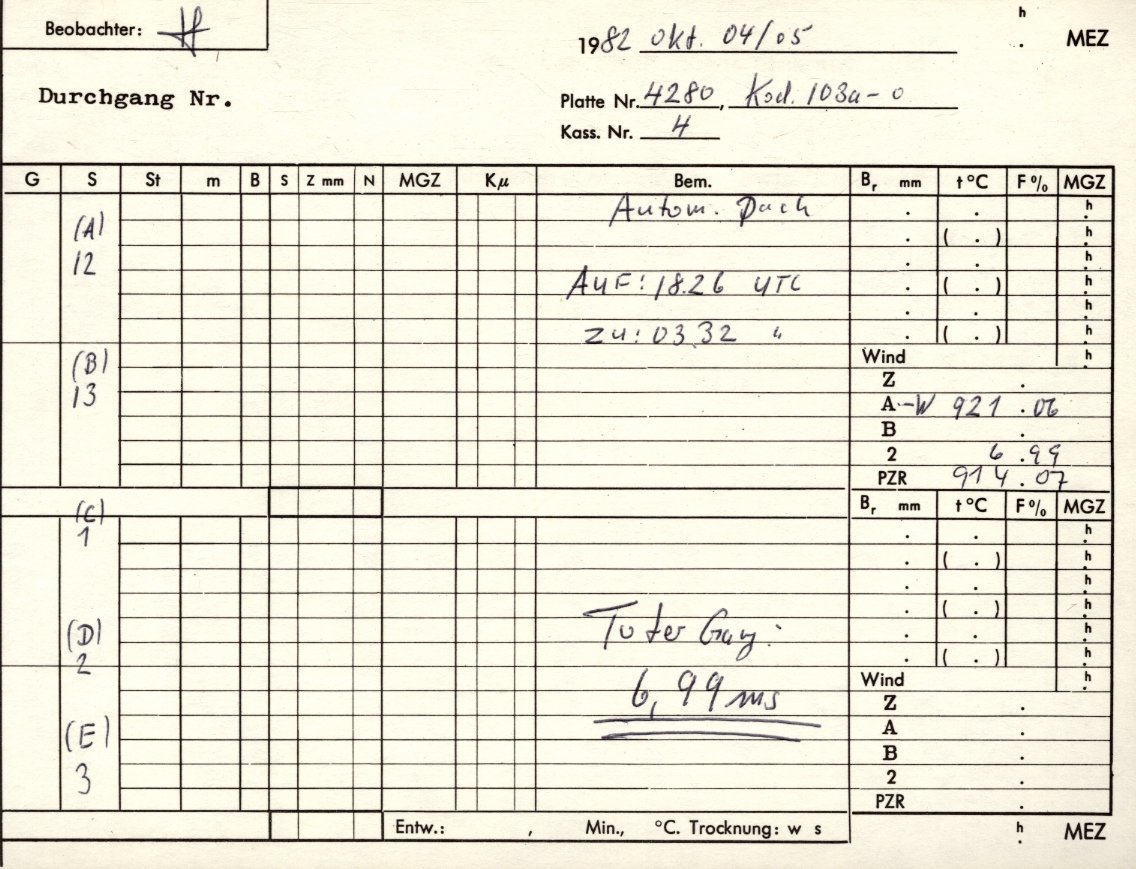 Beobachter: H
1982 Okt. 04/05
h . MEZ
Durchgang Nr.
Platte Nr. 4280, Kod. 103a-o
Kass. Nr. 4
G S St m B S Z mm N MGZ Kμ Bem. Br mm t °C F% MGZ
Autom. Dach . . h .
(A) . ( . ) h .
12 . . h .
Auf: 18.26 UTC . ( . ) h .
. . h .
zu: 03.32 " . ( . ) h .
(B) Wind h .
13 Z .
A -W 921 .06
B .
2 6 .99
PZR 914 .07
(C) Br mm t °C F% MGZ
1 . . h .
. ( . ) h .
. . h .
. ( . ) h .
(D) Toter Gang: . . h .
2 . ( . ) h .
6,99 ms Wind h .
Z .
(E) A .
B .
3 2 .
PZR .
Entw.: , Min., °C. Trocknung: w s h . MEZ